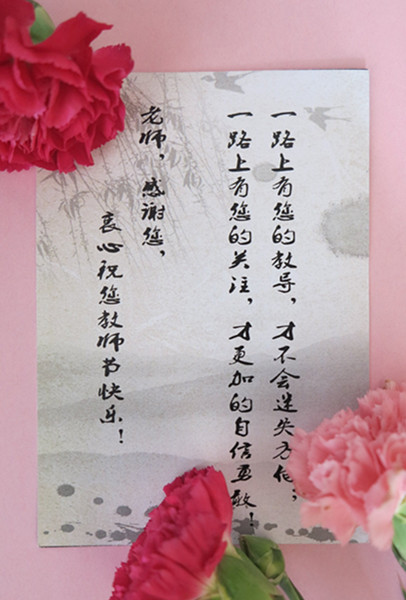 一路上有您的教导，才不会迷失方向；
一路上有您的关注，才更加的自信勇敢！
老师，感谢您，
衷心祝您教师节快乐！